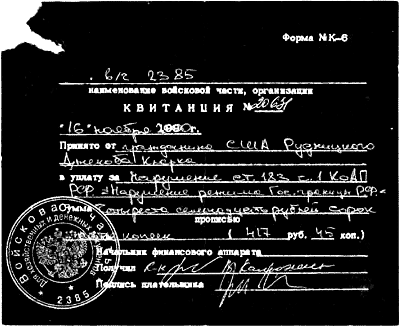 Форма №К-6
в/ч 2385
наименование войсковой части, организации
КВИТАНЦИЯ №
"16" ноября
Принято от гражданина США Рудницкого
Джекоба Кларка
в уплату за Нарушение ст. 183 ч. 1 КоАП
РСФ. "Нарушение режима Гос. границы РФ."
Сумма Четыреста семнадцать рублей сорок
прописью
копеек ( 417 руб. 45 коп.)
Начальник финансового аппарата
Получил
Подпись плательщика
Войсковая часть
2385